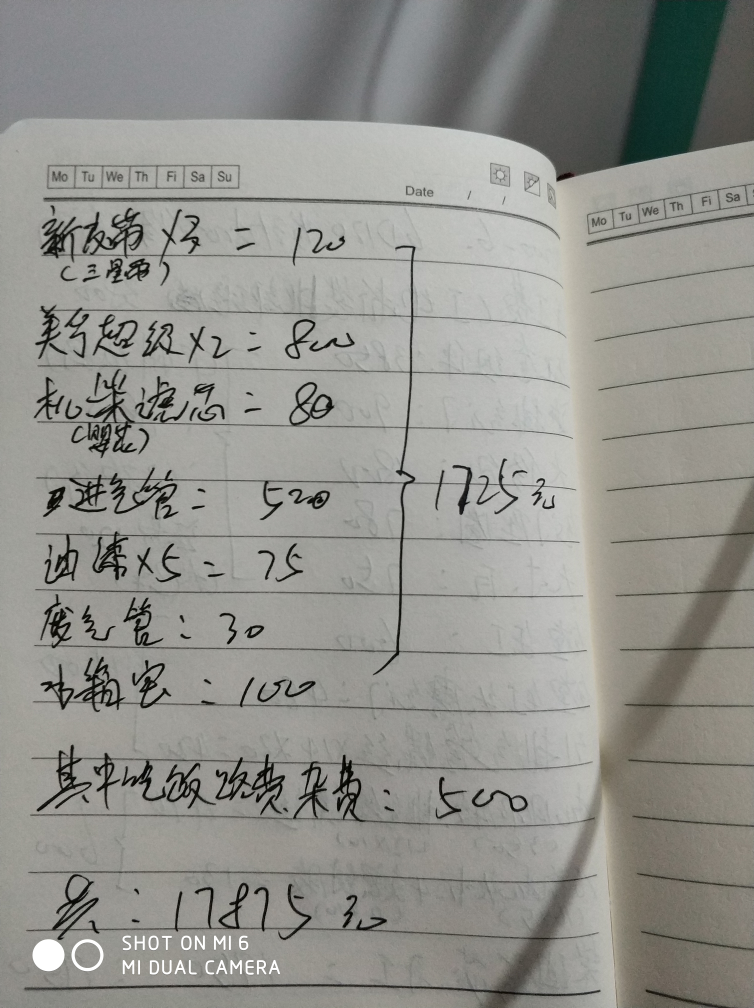 Mo Tu We Th Fr Sa Su
Date / /
Mo Tu We Th Fr Sa
新皮带 X3 = 120
(三星牌)
美孚超级 X2 = 800
机柴滤芯 = 80
进气管 = 520
油漆 X5 = 75
废气管 : 30
水箱宝 : 100
1725元
其中吃饭路费杂费 : 500
共 : 17875元
SHOT ON MI 6
MI DUAL CAMERA